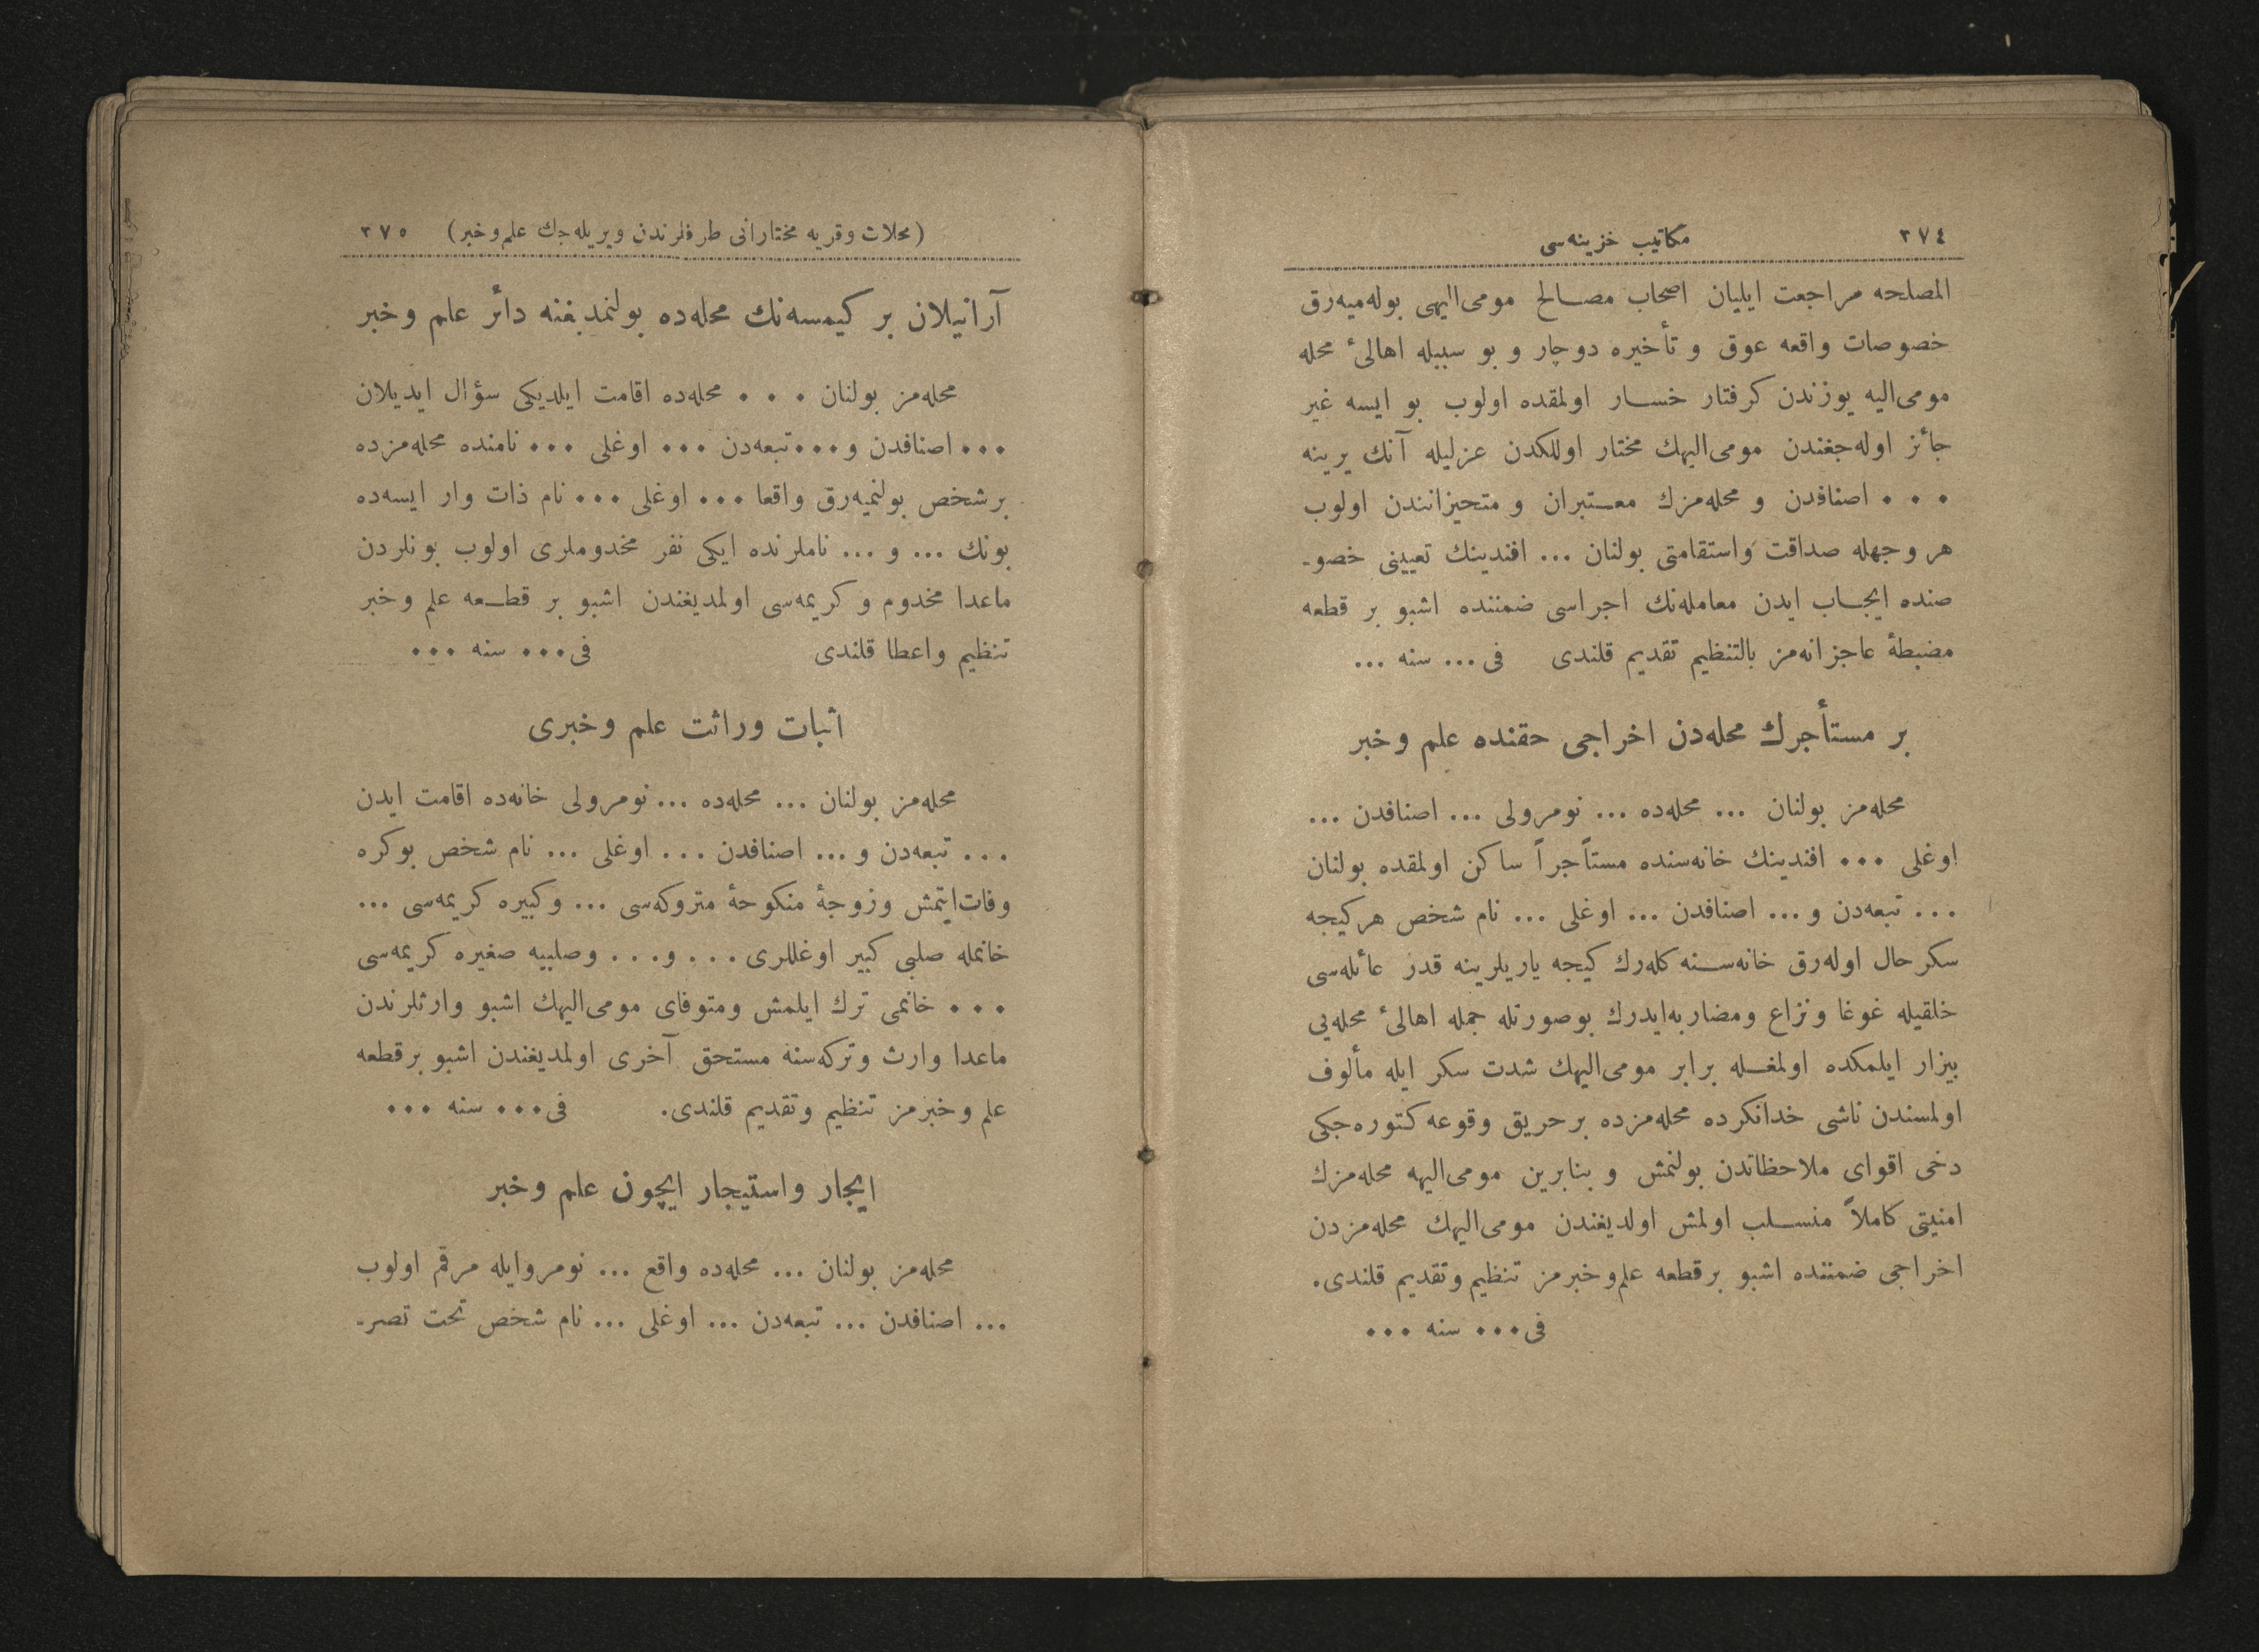 ٣٧٤ مكاتيب خزينه‌سى
المصلحه مراجعت ايليان اصحاب مصالح مومى‌اليهى بوله‌ميه‌رق
خصوصات واقعه عوق و تأخيره دوچار و بو سببله اهالئ محله
مومى‌اليه يوزندن كرفتار خسار اولمقده اولوب بو ايسه غير
جائز اوله‌جغندن مومى‌اليهك مختار اوللكدن عزليله آنك يرينه
... اصنافدن و محله‌مزك معتبران و متحيزانندن اولوب
هر وجهله صداقت واستقامتى بولنان ... افندينك تعيينى خصو-
صنده ايجاب ايدن معامله‌نك اجراسى ضمننده اشبو بر قطعه
مضبطهٔ عاجزانه‌مز بالتنظيم تقديم قلندى فى ... سنه ...
بر مستأجرك محله‌دن اخراجى حقنده علم وخبر
محله‌مز بولنان ... محله‌ده ... نومرولى ... اصنافدن ...
اوغلى ... افندينك خانه‌سنده مستأجراً ساكن اولمقده بولنان
... تبعه‌دن و ... اصنافدن ... اوغلى ... نام شخص هركيجه
سكرحال اوله‌رق خانه‌سنه كله‌رك كيجه ياريلرينه قدر عائله‌سى
خلقيله غوغا ونزاع ومضاربه‌ايدرك بوصورتله جمله اهالئ محله‌يى
بيزار ايلمكده اولمغله برابر مومى‌اليهك شدت سكر ايله مألوف
اولمسندن ناشى خدانكرده محله‌مزده برحريق وقوعه كتوره‌جكى
دخى اقواى ملاحظاتدن بولنمش و بنابرين مومى‌اليهه محله‌مزك
امنيتى كاملاً منسلب اولمش اولديغندن مومى‌اليهك محله‌مزدن
اخراجى ضمننده اشبو برقطعه علم‌وخبرمز تنظيم وتقديم قلندى.
فى ... سنه ...
(محلات وقريه مختارانى طرفلرندن ويريله‌جك علم‌وخبر) ٣٧٥
آرانيلان بر كيمسه‌نك محله‌ده بولنمديغنه دائر علم وخبر
محله‌مز بولنان ... محله‌ده اقامت ايلديكى سؤال ايديلان
... اصنافدن و ... تبعه‌دن ... اوغلى ... نامنده محله‌مزده
برشخص بولنميه‌رق واقعا ... اوغلى ... نام ذات وار ايسه‌ده
بونك ... و ... ناملرنده ايكى نفر مخدوملرى اولوب بونلردن
ماعدا مخدوم و كريمه‌سى اولمديغندن اشبو بر قطعه علم وخبر
تنظيم واعطا قلندى فى ... سنه ...
اثبات وراثت علم وخبرى
محله‌مز بولنان ... محله‌ده ... نومرولى خانه‌ده اقامت ايدن
... تبعه‌دن و ... اصنافدن ... اوغلى ... نام شخص بوكره
وفات‌ايتمش وزوجهٔ منكوحهٔ متروكه‌سى ... وكبيره كريمه‌سى ...
خانمله صلبى كبير اوغللرى ... و ... وصلبيه صغيره كريمه‌سى
... خانمى ترك ايلمش ومتوفاى مومى‌اليهك اشبو وارثلرندن
ماعدا وارث وتركه‌سنه مستحق آخرى اولمديغندن اشبو برقطعه
علم وخبرمز تنظيم وتقديم قلندى. فى ... سنه ...
ايجار واستيجار ايچون علم وخبر
محله‌مز بولنان ... محله‌ده واقع ... نومروايله مرقم اولوب
... اصنافدن ... تبعه‌دن ... اوغلى ... نام شخص تحت تصر-